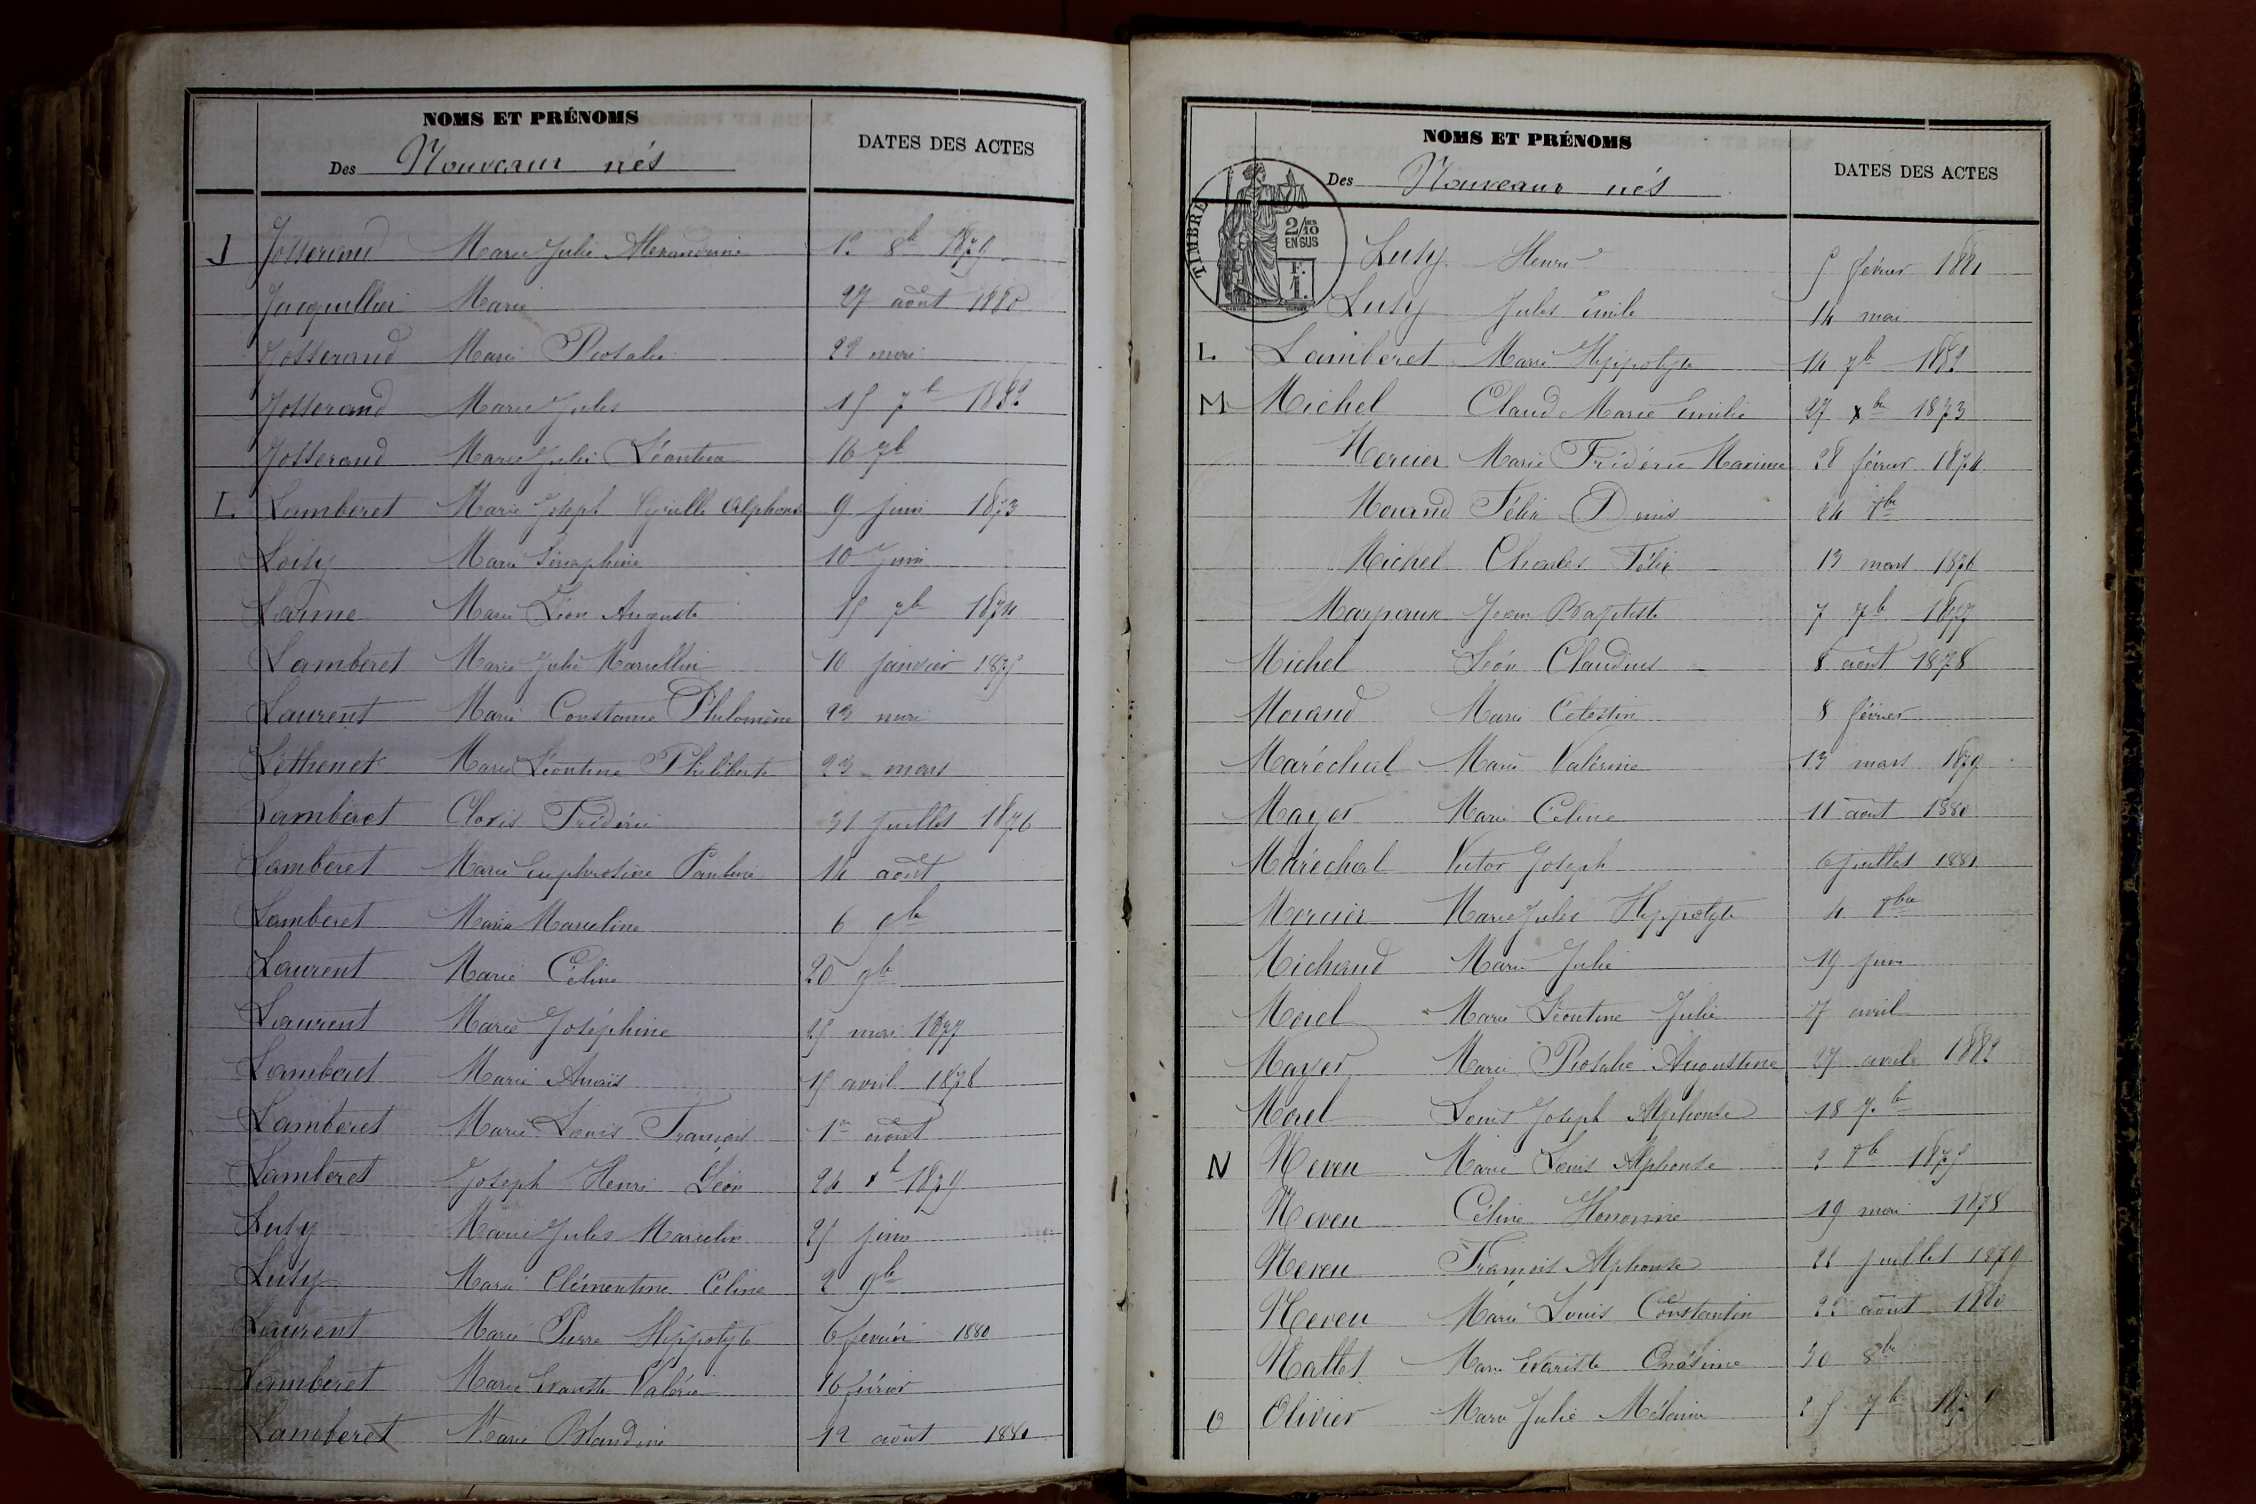 NOMS ET PRÉNOMS
Des Nouveaux nés
DATES DES ACTES
J Josserand Marie Julie Alexandrine 12 8b 1879
Jacquellier Marie 27 août 1880
Josserand Marie Rosalie 22 mai
Josserand Marie Jules 15 7b 1882
Josserand Marie Julie Léontine 16 7b
L. Lamberet Marie Joseph Cyrille Alphonse 9 juin 1873
Loisy Marie Séraphine 10 Juin
Larme Marie Léon Auguste 15 7b 1874
Lamberet Marie Julie Marcellin 10 janvier 1875
Laurent Marie Constance Philomène 23 mai
Léthenet Marie Léontine Philiberte 23 mars
Lamberet Clovis Frédéric 31 Juillet 1876
Lamberet Marie Euphrosine Pauline 14 août
Lamberet Marie Marceline 6 9b
Laurent Marie Céline 20 9b
Laurent Marie Joséphine 25 mai 1877
Lamberet Marie Anaïs 15 avril 1878
Lamberet Marie Louis François 1er août
Lamberet Joseph Henri Léon 24 xb 1879
Lusy Marie Jules Marcelin 25 juin
Lusy Marie Clémentine Céline 2 9b
Laurent Marie Pierre Hippolyte 6 février 1880
Lamberet Marie Evariste Valérie 16 février
Lamberet Marie Blandine 12 août 1880
NOMS ET PRÉNOMS
Des Nouveaux nés
DATES DES ACTES
TIMBRE
2/10
EN SUS
F.
1.
Lusy Henri 5 février 1881
Lusy Jules Emile 14 mai
L. Lamberet Marie Hippolyte 14 7b 1882
M Michel Claude Marie Emilie 27 xbre 1873
Mercier Marie Frédéric Maxime 28 février 1874
Morand Félix Denis 24 8bre
Michel Charles Félix 13 mars 1876
Marpaux Jean Baptiste 7 7b 1877
Michel Léon Claudius 8 août 1878
Morand Marie Célestin 8 février
Maréchal Marie Valérine 13 mars 1879
Mayer Marie Céline 11 août 1880
Maréchal Victor Joseph 6 juillet 1881
Mercier Marie Jules Hippolyte 4 8bre
Michaud Marie Julie 19 juin
Morel Marie Léontine Julie 17 avril
Mayer Marie Rosalie Augustine 27 avril 1882
Morel Louis Joseph Alphonse 18 7b
N Neveu Marie Louis Alphonse 2 8b 1875
Neveu Céline Honorine 19 mai 1878
Neveu François Alphonse 22 juillet 1879
Neveu Marie Louis Constantin 22 août 1880
Nallet Marie Evariste Onésime 30 8bre
O Olivier Marie Julie Mélanie 25 7b